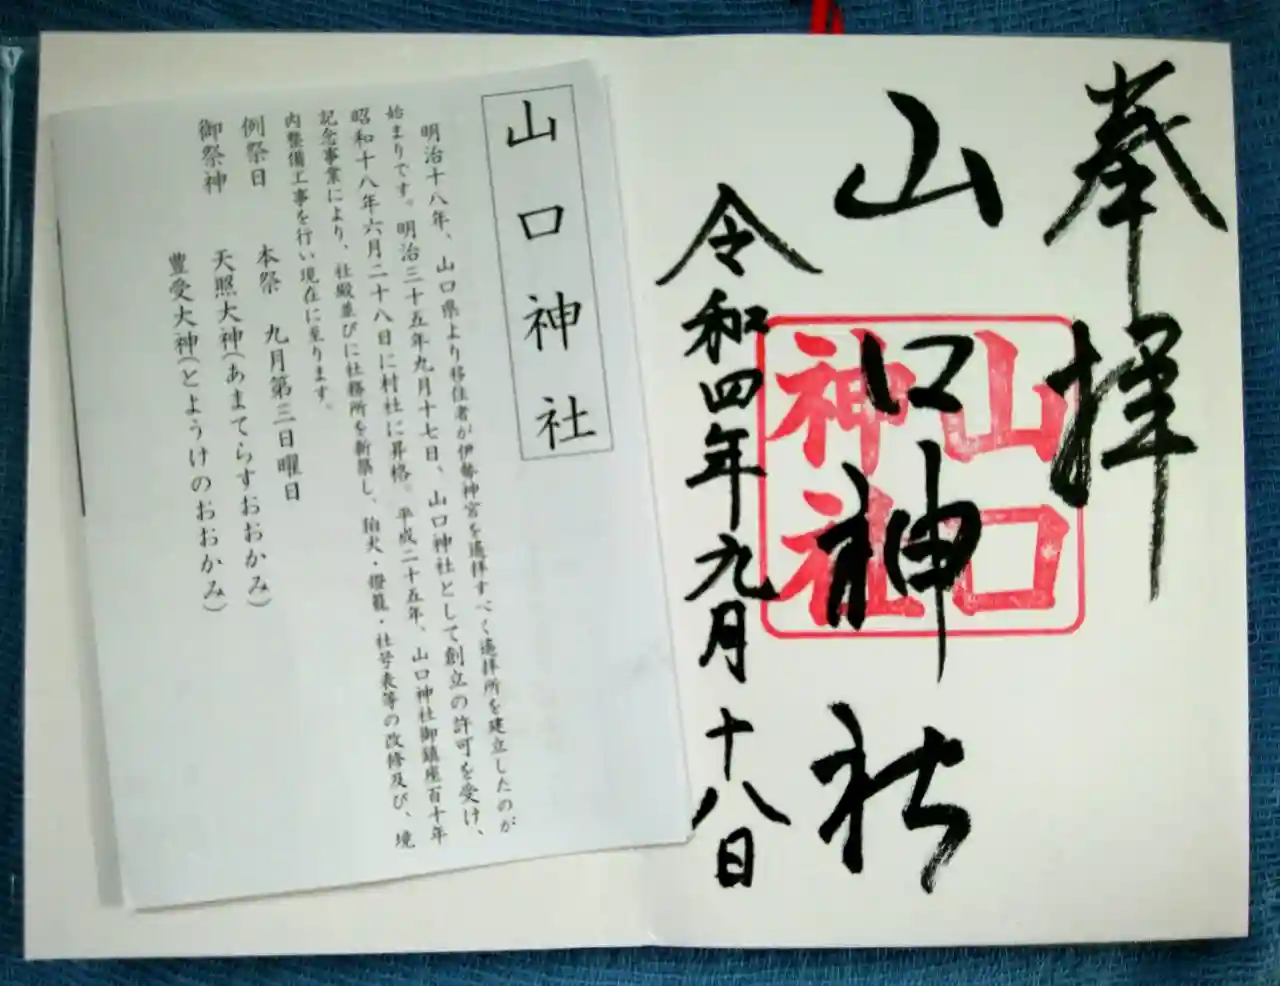 奉拝
山口神社
山口
神社
令和四年九月十八日
山口神社
明治十八年、山口県より移住者が伊勢神宮を遙拝すべく遙拝所を建立したのが
始まりです。明治三十五年九月十七日、山口神社として創立の許可を受け、
昭和十八年六月二十八日に村社に昇格。平成二十五年、山口神社御鎮座百十年
記念事業により、社殿並びに社務所を新築し、狛犬・燈籠・社号表等の改修及び、境
内整備工事を行い現在に至ります。
例祭日 本祭 九月第三日曜日
御祭神 天照大神(あまてらすおおかみ)
豊受大神(とようけのおおかみ)